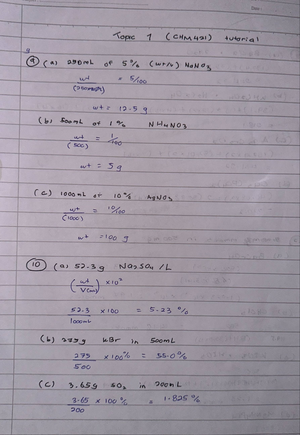 Topic 1 (CHM421) tutorial
9 (a) 250mL of 5% (wt/v) NaNO3
wt = 5/100
wt = 12.5 g
(b) 500mL of 1% NH4NO3
wt = 1/100
(500)
wt = 5 g
(c) 1000mL of 10% AgNO3
wt = 10/100
(1000)
wt = 100 g
10 (a) 52.3 g Na2SO4 /L
(wt / V(mL)) ×10²
52.3 ×100 = 5.23 %
1000mL
(b) 275g KBr in 500mL
275 ×100% = 55.0%
500
(c) 3.65g SO2 in 200mL
3.65 ×100% = 1.825%
200